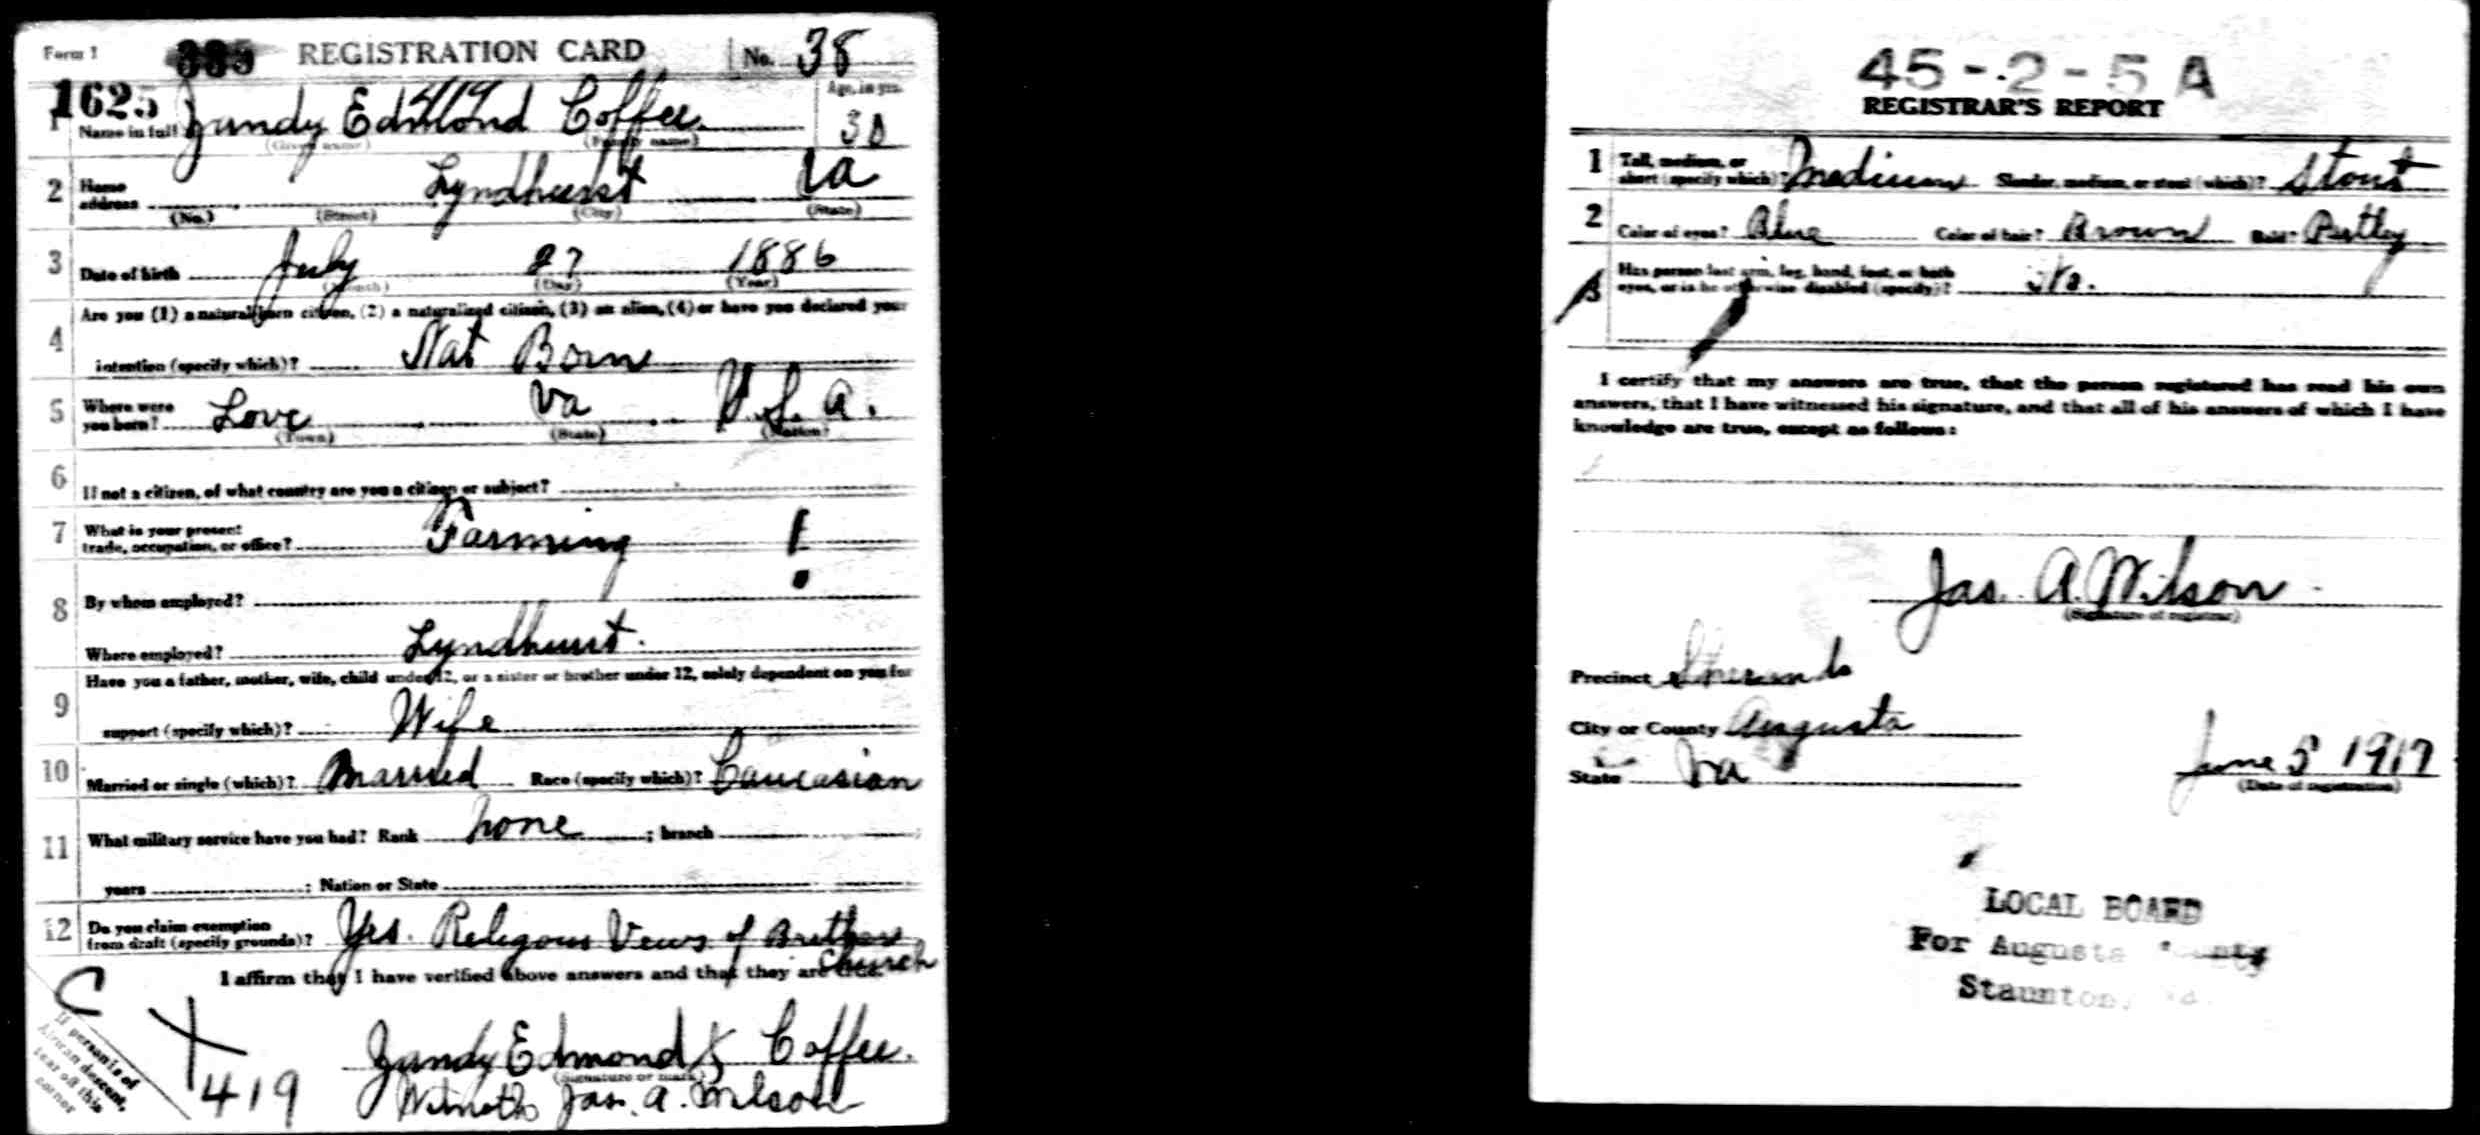 Form 1 335 REGISTRATION CARD No. 38
1625 419 Age, in yrs.
1 Name in full Zandy Edmond Coffee 30
(Given name) (Family name)
2 Home address Lyndhurst Va
(No.) (Street) (City) (State)
3 Date of birth July 27 1886
(Month) (Day) (Year)
4 Are you (1) a natural born citizen, (2) a naturalized citizen, (3) an alien, (4) or have you declared your
intention (specify which)? Nat Born
5 Where were you born? Love Va U.S.A.
(Town) (State) (Nation)
6 If not a citizen, of what country are you a citizen or subject?
7 What is your present trade, occupation, or office? Farming !
8 By whom employed?
Where employed? Lyndhurst.
9 Have you a father, mother, wife, child under 12, or a sister or brother under 12, solely dependent on you for
support (specify which)? Wife
10 Married or single (which)? Married Race (specify which)? Caucasian
11 What military service have you had? Rank none ; branch
years ; Nation or State
12 Do you claim exemption from draft (specify grounds)? Yes. Religous Views of Brethern
Church
I affirm that I have verified above answers and that they are true.
C
Zandy Edmond X Coffee.
(Signature or mark)
Jas. A. Wilson
419
If person is of
African descent,
tear off this
corner
45-2-5 A
REGISTRAR'S REPORT
1 Tall, medium, or short (specify which)? Medium Slender, medium, or stout (which)? Stout
2 Color of eyes? Blue Color of hair? Brown Bald? Partly
3 Has person lost arm, leg, hand, foot, or both
eyes, or is he otherwise disabled (specify)? No.
I certify that my answers are true, that the person registered has read his own
answers, that I have witnessed his signature, and that all of his answers of which I have
knowledge are true, except as follows:
Jas. A. Wilson
(Signature of registrar)
Precinct Sherando
City or County Augusta
State Va June 5 1917
(Date of registration)
LOCAL BOARD
For Augusta County
Staunton, Va.